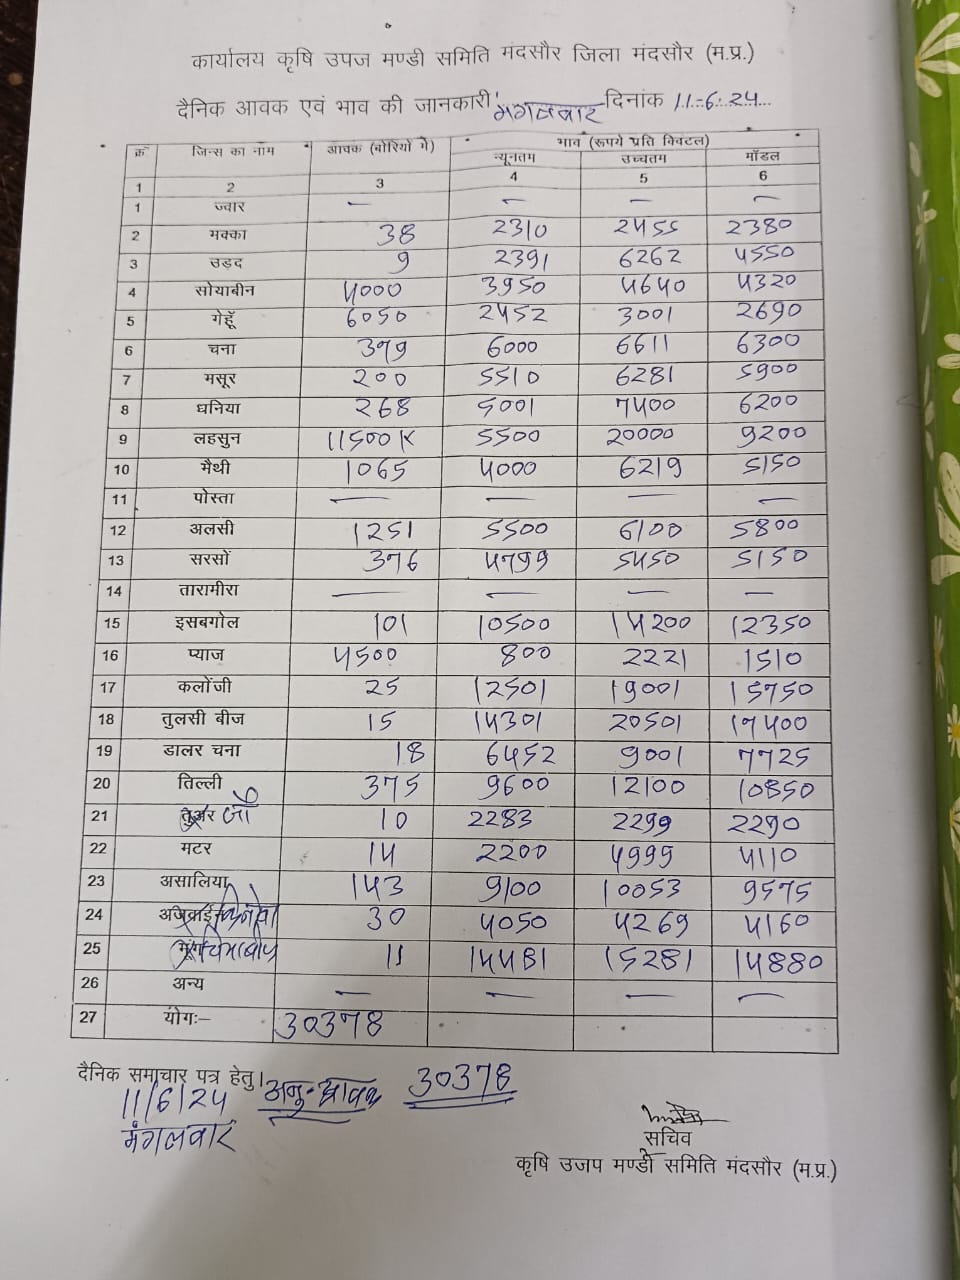 कार्यालय कृषि उपज मण्डी समिति मंदसौर जिला मंदसौर (म.प्र.)
दैनिक आवक एवं भाव की जानकारी मंगलवार दिनांक 11-6-24
क्र जिन्स का नाम आवक (बोरियों में) भाव (रूपये प्रति क्विटल)
न्यूनतम उच्चतम मॉडल
1 2 3 4 5 6
1 ज्वार — — — —
2 मक्का 38 2310 2455 2380
3 उड़द 9 2391 6262 4550
4 सोयाबीन 4000 3950 4640 4320
5 गेहूँ 6050 2452 3001 2690
6 चना 379 6000 6611 6300
7 मसूर 200 5510 6281 5900
8 धनिया 268 5001 7400 6200
9 लहसुन 11500 K 5500 20000 9200
10 मैथी 1065 4000 6219 5150
11 पोस्ता — — — —
12 अलसी 1251 5500 6100 5800
13 सरसों 376 4799 5450 5150
14 तारामीरा — — — —
15 इसबगोल 101 10500 14200 12350
16 प्याज 4500 800 2221 1510
17 कलोंजी 25 12501 19001 15750
18 तुलसी बीज 15 14301 20501 17400
19 डालर चना 18 6452 9001 7725
20 तिल्ली 375 9600 12100 10850
21 तुअर जौ 10 2283 2299 2290
22 मटर 14 2200 4999 4110
23 असालिया 143 9100 10053 9575
24 अजवाईन 30 4050 4269 4160
25 चियाबीज 11 14481 15281 14880
26 अन्य — — — —
27 योगः– 30378
दैनिक समाचार पत्र हेतु। अनु-आवक 30378
11/6/24
मंगलवार
सचिव
कृषि उजप मण्डी समिति मंदसौर (म.प्र.)